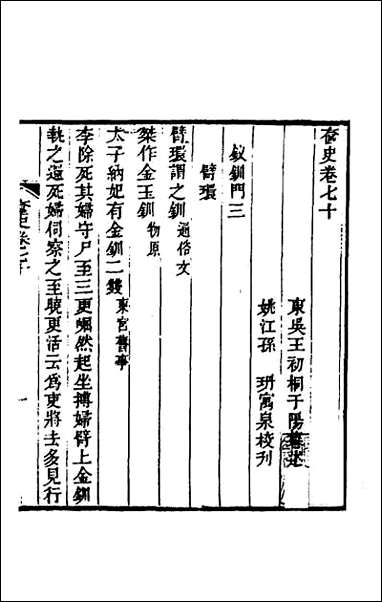 奩史卷七十
東吳王初桐于陽
姚江孫 琇寓泉校刊
釵釧門三
臂環
臂環謂之釧通俗文
桀作金玉釧物原
太子納妃有金釧二雙東宮舊事
李除死其婦守尸至三更崛然起坐搏婦臂上金釧
執之還死婦伺察之至曉更活云爲吏將去多見行